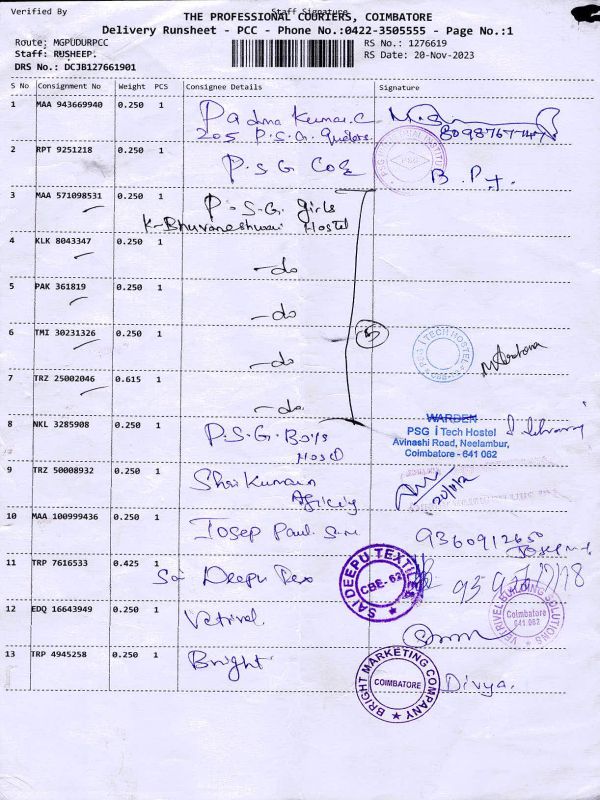 Verified By
Staff Signature
THE PROFESSIONAL COURIERS, COIMBATORE
Delivery Runsheet - PCC - Phone No.:0422-3505555 - Page No.:1
Route: MGPUDURPCC
RS No.: 1276619
Staff: RUSHEEP.
RS Date: 20-Nov-2023
DRS No.: DCJB127661901
S No Consignment No Weight PCS Consignee Details Signature
1 MAA 943669940 0.250 1 Padma Kumar.C
205 P.S.G. 
2 RPT 9251218 0.250 1 P.S.G COE B.P.
PSG
3 MAA 571098531 0.250 1 P.S.G. girls
K-Bhuvaneshwari Hostel
4 KLK 8043347 0.250 1 -do
5 PAK 361819 0.250 1 -do
5
6 TMI 30231326 0.250 1 -do
I TECH HOSTEL
7 TRZ 25002046 0.615 1 -do
8 NKL 3285908 0.250 1 P.S.G. Boys
Hostel
WARDEN
PSG i Tech Hostel
Avinashi Road, Neelambur,
Coimbatore - 641 062
9 TRZ 50008932 0.250 1 Shri Kumaran
20/11/2
10 MAA 100999436 0.250 1 Josep Paul. S.M. 9360912650
11 TRP 7616533 0.425 1 Sai Deepu Tex
SAI DEEPU TEXTILES
CBE-62
12 EDQ 16643949 0.250 1 Vetrivel
VETRIVEL BUILDING SOLUTIONS
Coimbatore
641 062
13 TRP 4945258 0.250 1 Bright Divya.
BRIGHT MARKETING COMPANY
COIMBATORE